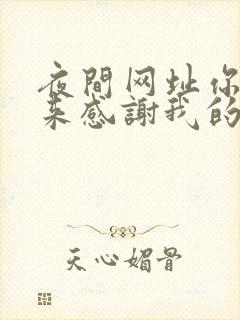 夜間网址你
来感謝我的
天心媚骨